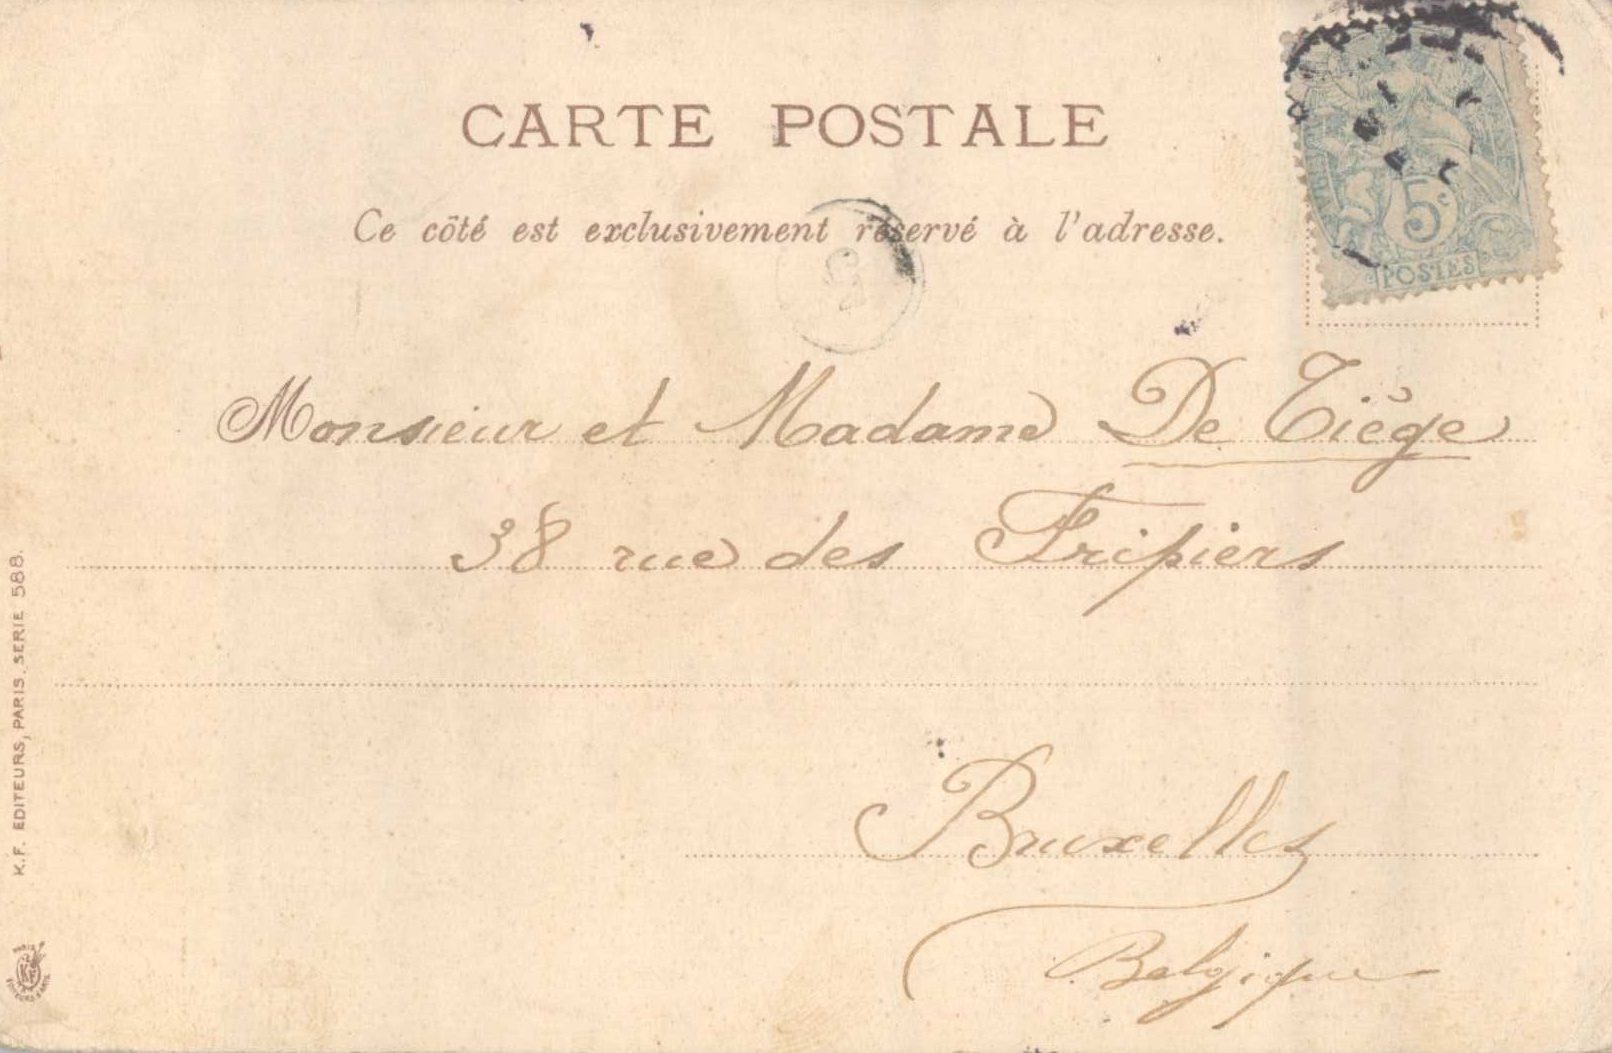 CARTE POSTALE
Ce côté est exclusivement réservé à l'adresse.
5c
POSTES
Monsieur et Madame De Tiège
38 rue des Fripiers
Bruxelles
Belgique
K.F. EDITEURS, PARIS. SERIE 588.